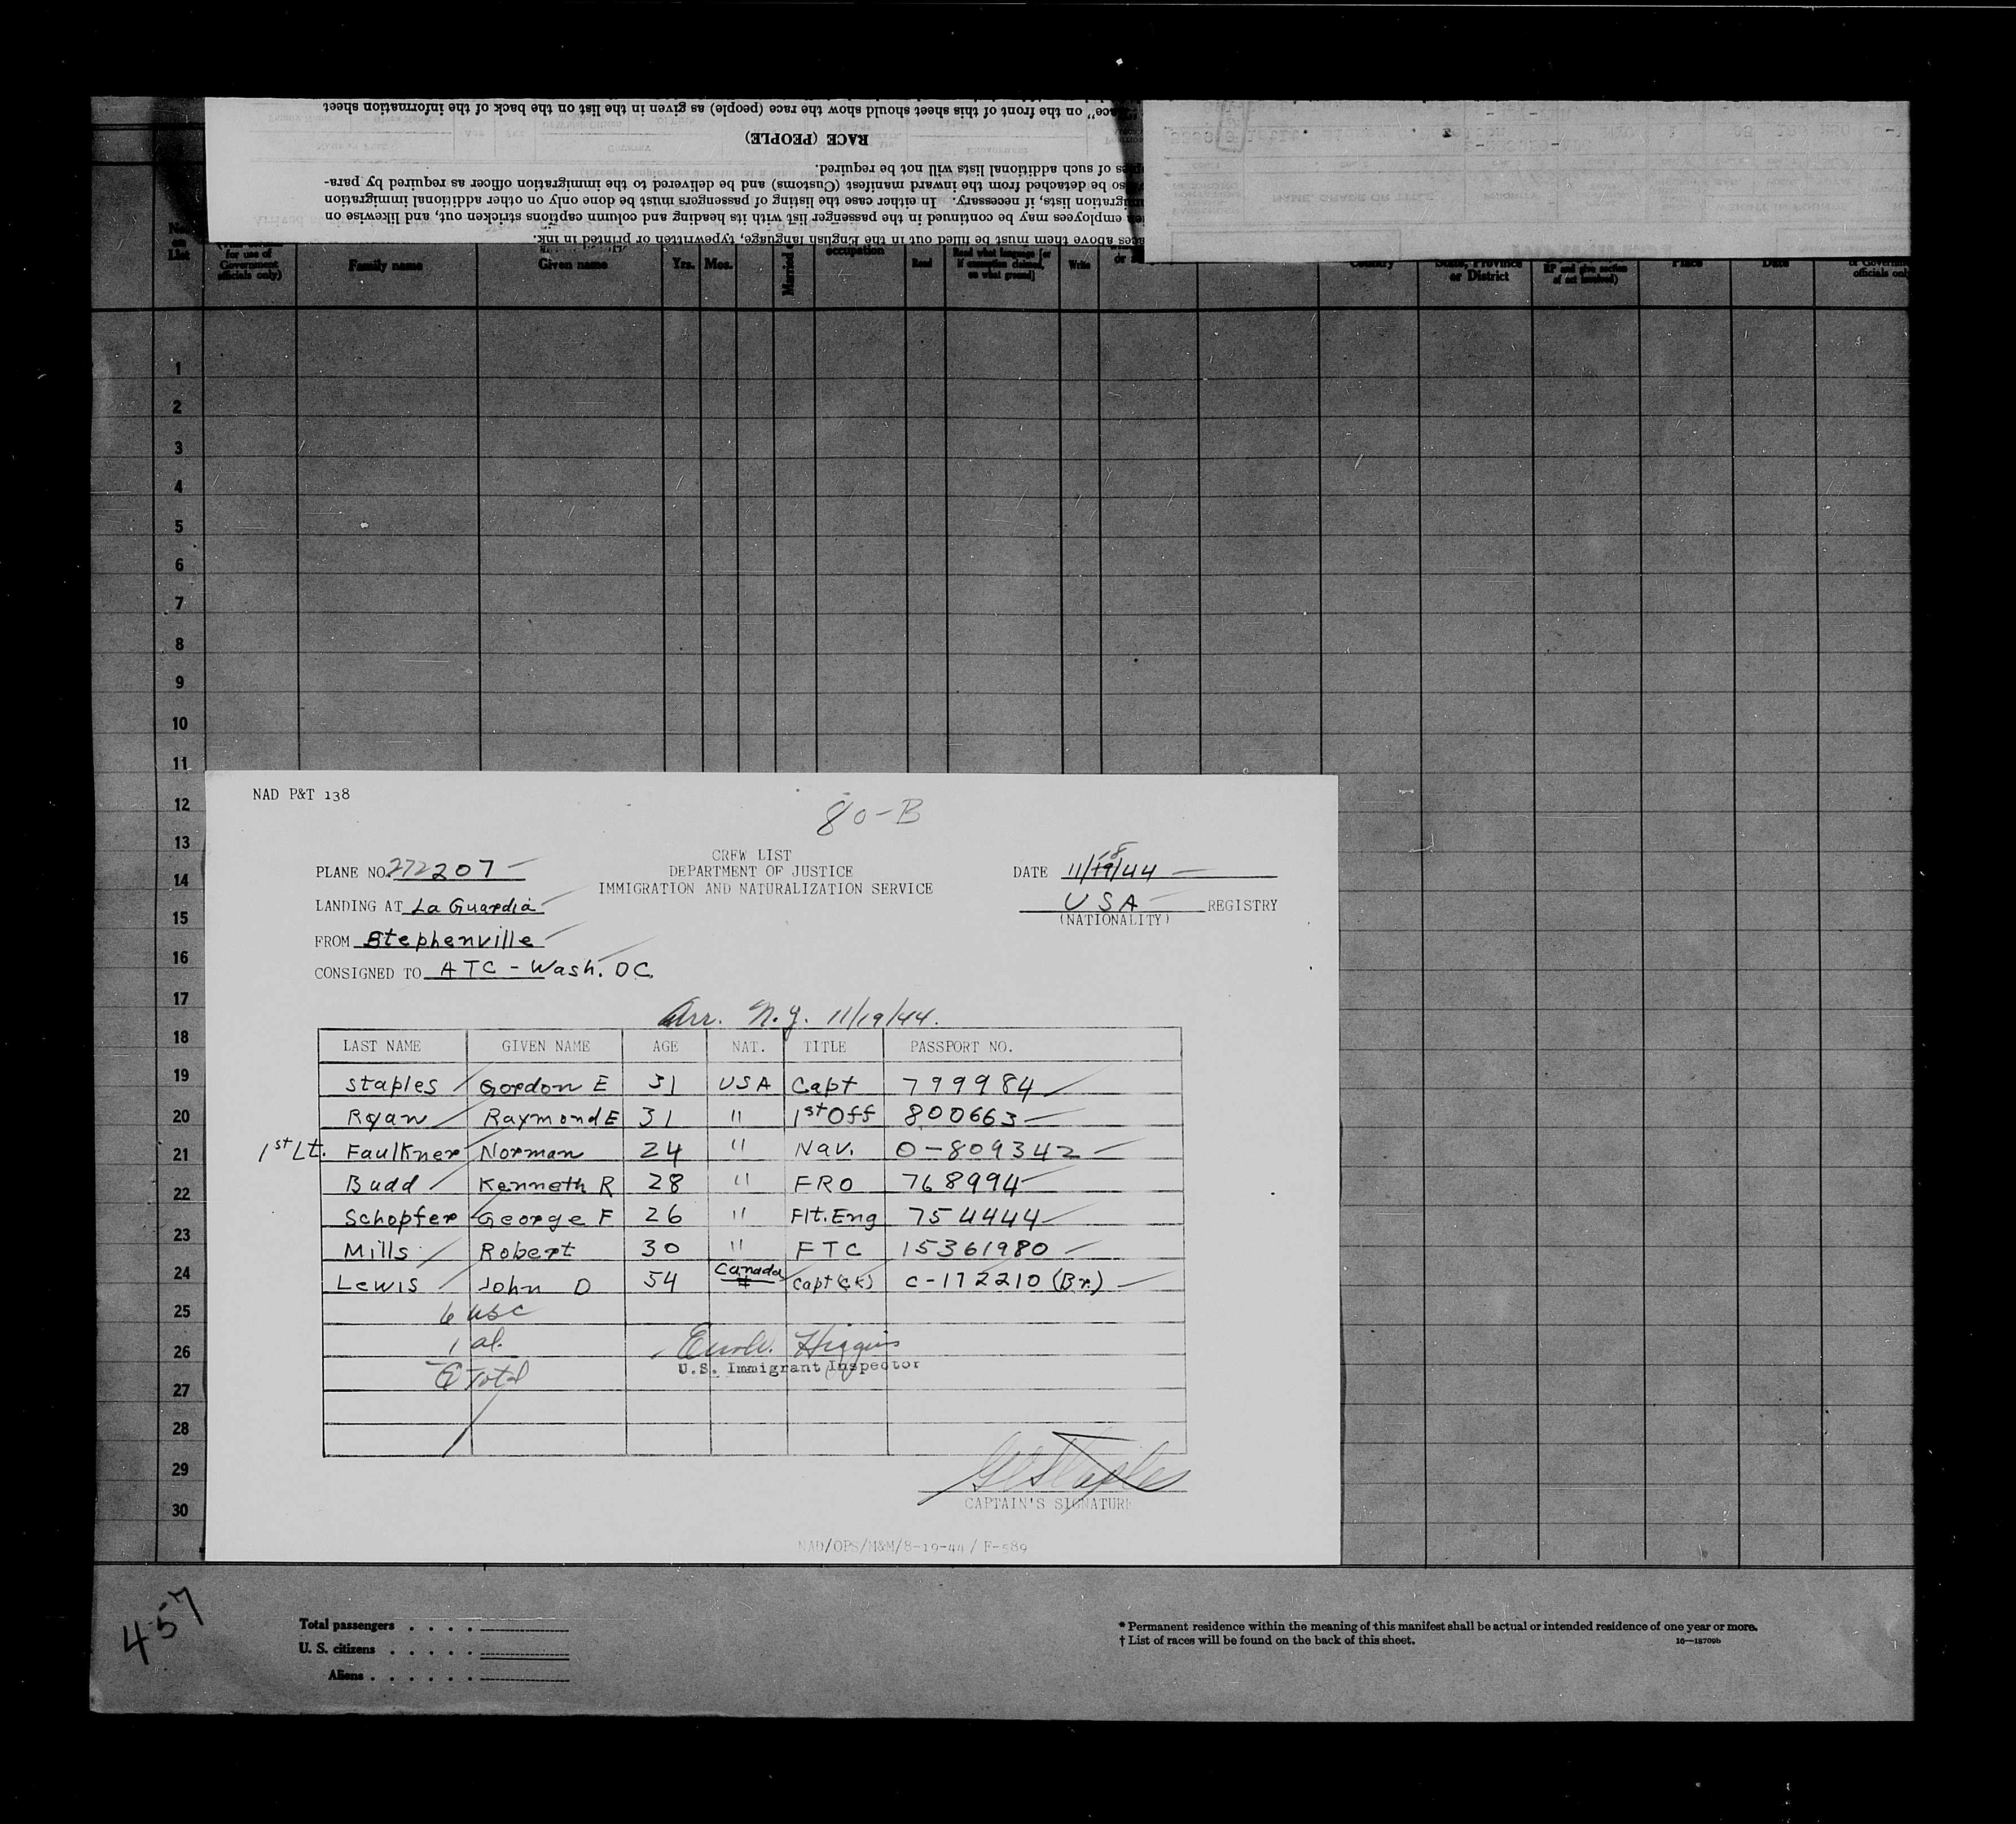 ace" on the front of this sheet should show the race (people) as given in the list on the back of the information sheet
RACE (PEOPLE)
of such additional lists will not be required.
so be detached from the inward manifest (Customs) and be delivered to the immigration officer as required by para-
igration lists, if necessary. In either case the listing of passengers must be done only on other additional immigration
employees may be continued in the passenger list with its heading and column captions stricken out, and likewise on
above them must be filled out in the English language, typewritten or printed in ink.
No. on List
for use of Government officials only)
Family name
Given name
Yrs.
Mos.
Married
occupation
Read
Read what language [or if exemption claimed, on what ground]
Write
Country
State, Province or District
Place
Date
officials only
1
2
3
4
5
6
7
8
9
10
11
12
13
14
15
16
17
18
19
20
21
22
23
24
25
26
27
28
29
30
NAD P&T 138
80-B
CREW LIST
DEPARTMENT OF JUSTICE
IMMIGRATION AND NATURALIZATION SERVICE
PLANE NO. 272207
LANDING AT La Guardia
FROM Stephenville
CONSIGNED TO ATC - Wash. DC.
DATE 11/18/44
USA REGISTRY
(NATIONALITY)
Arr. N.Y. 11/19/44.
LAST NAME GIVEN NAME AGE NAT. TITLE PASSPORT NO.
Staples Gordon E 31 USA Capt 799984
Ryan Raymond E 31 " 1st Off 800663
1st Lt. Faulkner Norman 24 " Nav. O-809342
Budd Kenneth R 28 " FRO 768994
Schopfer George F 26 " Flt. Eng 754444
Mills Robert 30 " FTC 15361980
Lewis John D 54 Canada Capt (CK) C-172210 (Br.)
6 usc
1 al.
7 Total
Higgins
U.S. Immigrant Inspector
GE Staples
CAPTAIN'S SIGNATURE
NAD/OPS/M&M/8-19-44/ F-589
457
Total passengers . . . .
U. S. citizens . . . . .
Aliens . . . . . .
* Permanent residence within the meaning of this manifest shall be actual or intended residence of one year or more.
† List of races will be found on the back of this sheet.
16—18709b